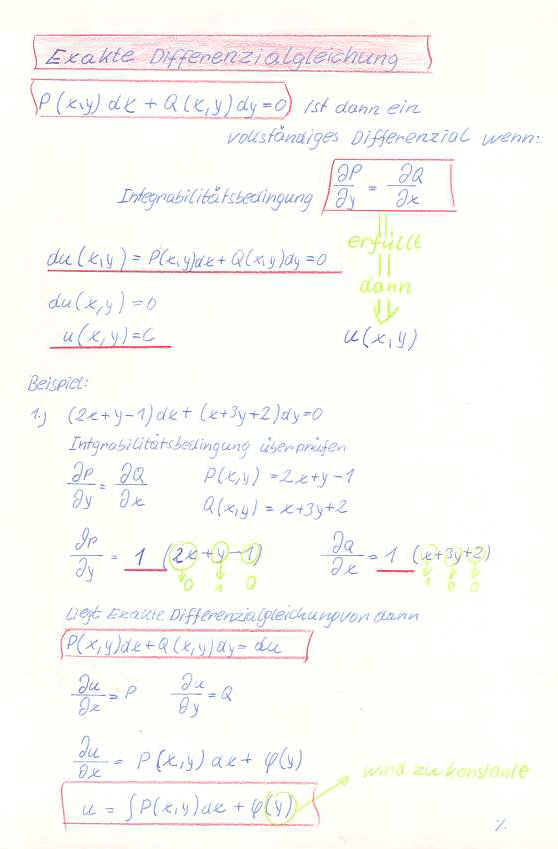 Exakte Differenzialgleichung
P(x,y)dx + Q(x,y)dy=0 ist dann ein
vollständiges Differenzial wenn:
Integrabilitätsbedingung ∂P/∂y = ∂Q/∂x
erfüllt
du(x,y) = P(x,y)dx + Q(x,y)dy=0
dann
du(x,y)=0
u(x,y)=C
u(x,y)
Beispiel:
1.) (2x+y-1)dx + (x+3y+2)dy=0
Intgrabilitätsbedingung überprüfen
∂P/∂y = ∂Q/∂x P(x,y) = 2x+y-1
Q(x,y) = x+3y+2
∂P/∂y = 1 (2x+y-1) ∂Q/∂x = 1 (x+3y+2)
0 1 0 1 0 0
liegt Exakte Differenzialgleichung von dann
P(x,y)dx + Q(x,y)dy = du
∂u/∂x = P ∂u/∂y = Q
∂u/∂x = P(x,y) dx + φ(y)
wird zu konstante
u = ∫P(x,y)dx + φ(y)